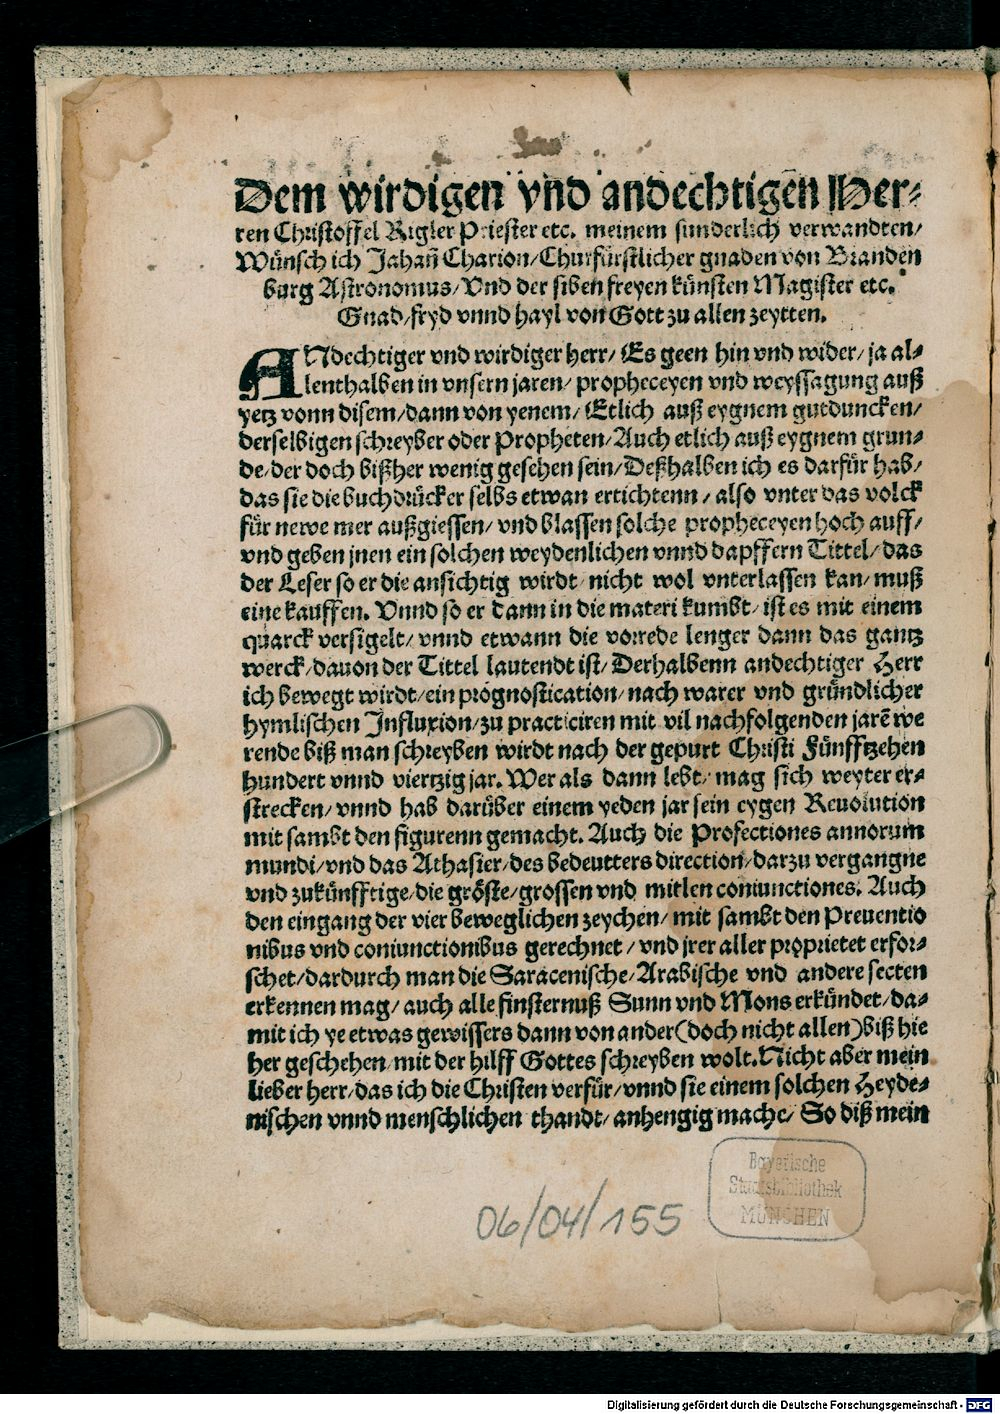 Dem wirdigen vnd andechtigen Her⸗
ren Christoffel Rigler Priester etc. meinem sunderlich verwandten/
Wünsch ich Jahañ Charion/ Churfürstlicher gnaden von Branden
burg Astronomus/ Vnd der siben freyen künsten Magister etc.
Gnad/ fryd vnnd hayl von Gott zu allen zeytten.
ANdechtiger vnd wirdiger herr/ Es geen hin vnd wider/ ja al⸗
lenthalben in vnsern jaren/ propheceyen vnd weyssagung auß
yetz vonn disem/ dann von yenem/ Etlich auß eygnem gutduncken/
derselbigen schreyber oder Propheten/ Auch etlich auß eygnem grun⸗
de/ der doch bißher wenig gesehen sein/ Deßhalben ich es darfür hab/
das sie die buchdrücker selbs etwan ertichtenn/ also vnter das volck
für newe mer außgiessen/ vnd blassen solche propheceyen hoch auff/
vnd geben jnen ein solchen weydenlichen vnnd dapffern Tittel/ das
der Leser so er die ansichtig wirdt/ nicht wol vnterlassen kan/ muß
eine kauffen. Vnnd so er dann in die materi kumbt/ ist es mit einem
quarck versigelt/ vnnd etwann die vorrede lenger dann das gantz
werck/ dauon der Tittel lautendt ist/ Derhalbenn andechtiger Herr
ich bewegt wirdt/ ein prognostication/ nach warer vnd gründlicher
hymlischen Influxion/ zu practiciren mit vil nachfolgenden jarē we
rende biß man schreyben wirdt nach der gepurt Christi Fünfftzehen
hundert vnnd viertzig jar. Wer als dann lebt/ mag sich weyter er⸗
strecken/ vnnd hab darüber einem yeden jar sein eygen Reuolution
mit sambt den figurenn gemacht. Auch die Profectiones annorum
mundi/ vnd das Athasier/ des bedeutters direction/ darzu vergangne
vnd zukünfftige/ die gröste/ grossen vnd mitlen coniunctiones. Auch
den eingang der vier beweglichen zeychen/ mit sambt den Preuentio
nibus vnd coniunctionibus gerechnet/ vnd jrer aller proprietet erfor⸗
schet/ dardurch man die Saracenische/ Arabische vnd andere secten
erkennen mag/ auch alle finsternuß Sunn vnd Mons erkündet/ da⸗
mit ich ye etwas gewissers dann von ander (doch nicht allen) biß hie
her geschehen/ mit der hilff Gottes schreyben wolt. Nicht aber mein
lieber herr/ das ich die Christen verfür/ vnnd sie einem solchen Heyde⸗
nischen vnnd menschlichen thandt/ anhengig mache/ So diß mein
Bayerische
Staatsbibliothek
MÜNCHEN
06/04/155
Digitalisierung gefördert durch die Deutsche Forschungsgemeinschaft - DFG